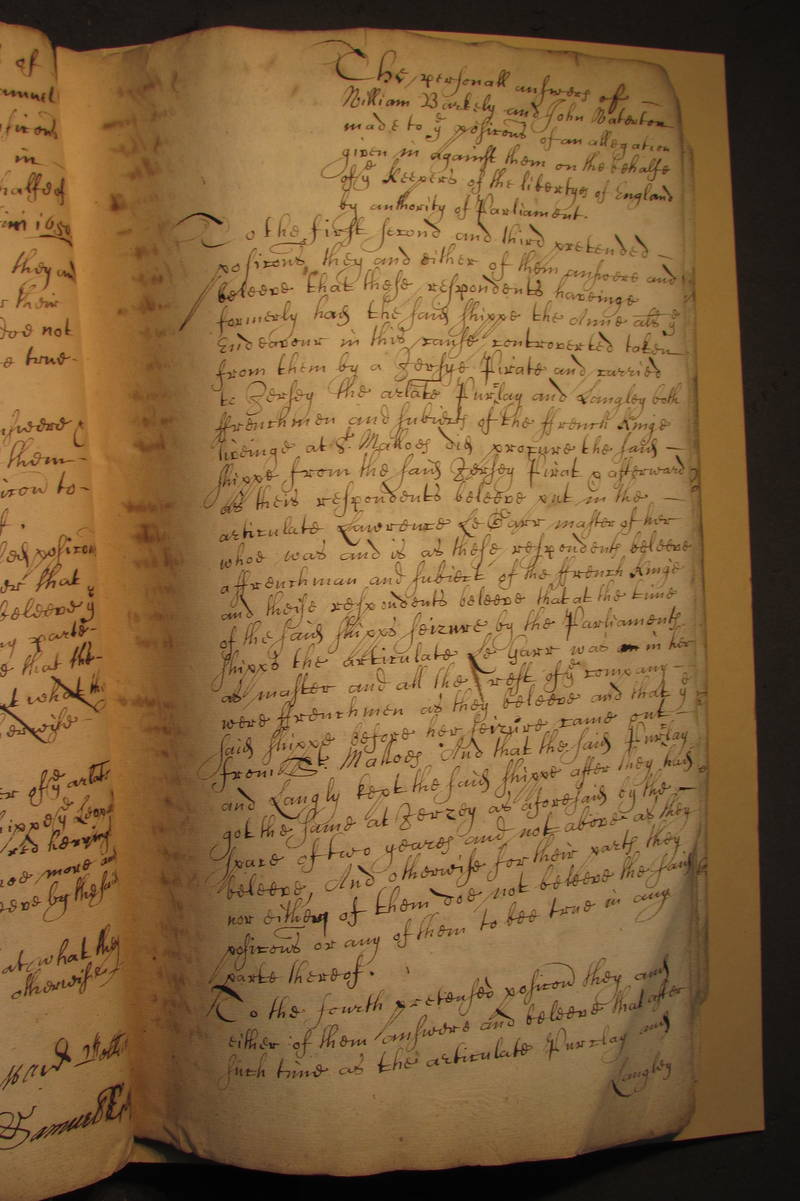 of
amuel
positons
in
halfe of
1650
they and
r their
doe not
e true
nsweere
them
ition to
f.
led positon
er that
beleeve yͤ
ny parte
e that the
t what the
herwise
er of yͤ arlate
hippe yͤ Leopo
red herring
nce more and
eeve by the said
at what they
otherwise
The personall answers of
William Barkely and John Waterton
made to yͤ positons of an allegation
given in against them on the behalfe
of yͤ Keepers of the libertyes of England
by authority of Parliament.
To the first second and third pretended
positons they and either of them answere and
beleeve that these respondents haveinge
formerly had the said shippe the Anne als yͤ
Endeavour in this cause controverted taken
from them by a Jersye Pirate and carried
to Jersey the arlate Purlay and Langley both
ffrenchmen and subiects of the ffrench Kinge
liveinge at Sͭ. Malloes did procure the said
shippe from the said Jersey Pirat & afterward
as theis respondents beleeve put in the
articulate Lawrence Le Garr master of her
whoe was and is as these respondents beleeve
a ffrenchman and subiect of the ffrench Kinge
and theise respondents beleeve that at the time
of the said shipps seizure by the Parliaments
shipps the articulate Le Garr was in her
as master and all the rest of yͤ company
were ffrenchmen as they beleeve and that yͤ
said shippe before her seizure came out
from Sͭ. Malloes And that the said Purlay
and Langly kept the said shippe after they had
got the same at Jerzey as aforesaid by the
space of two yeares and not above as they
beleeve, And otherwise for their parts they
nor either of them doe not beleeve the said
positons or any of them to bee true in any
parte thereof.
To the fourth pretensed positon they and
either of them answere and beleeve that after
such time as the articulate Purlay and
Langley